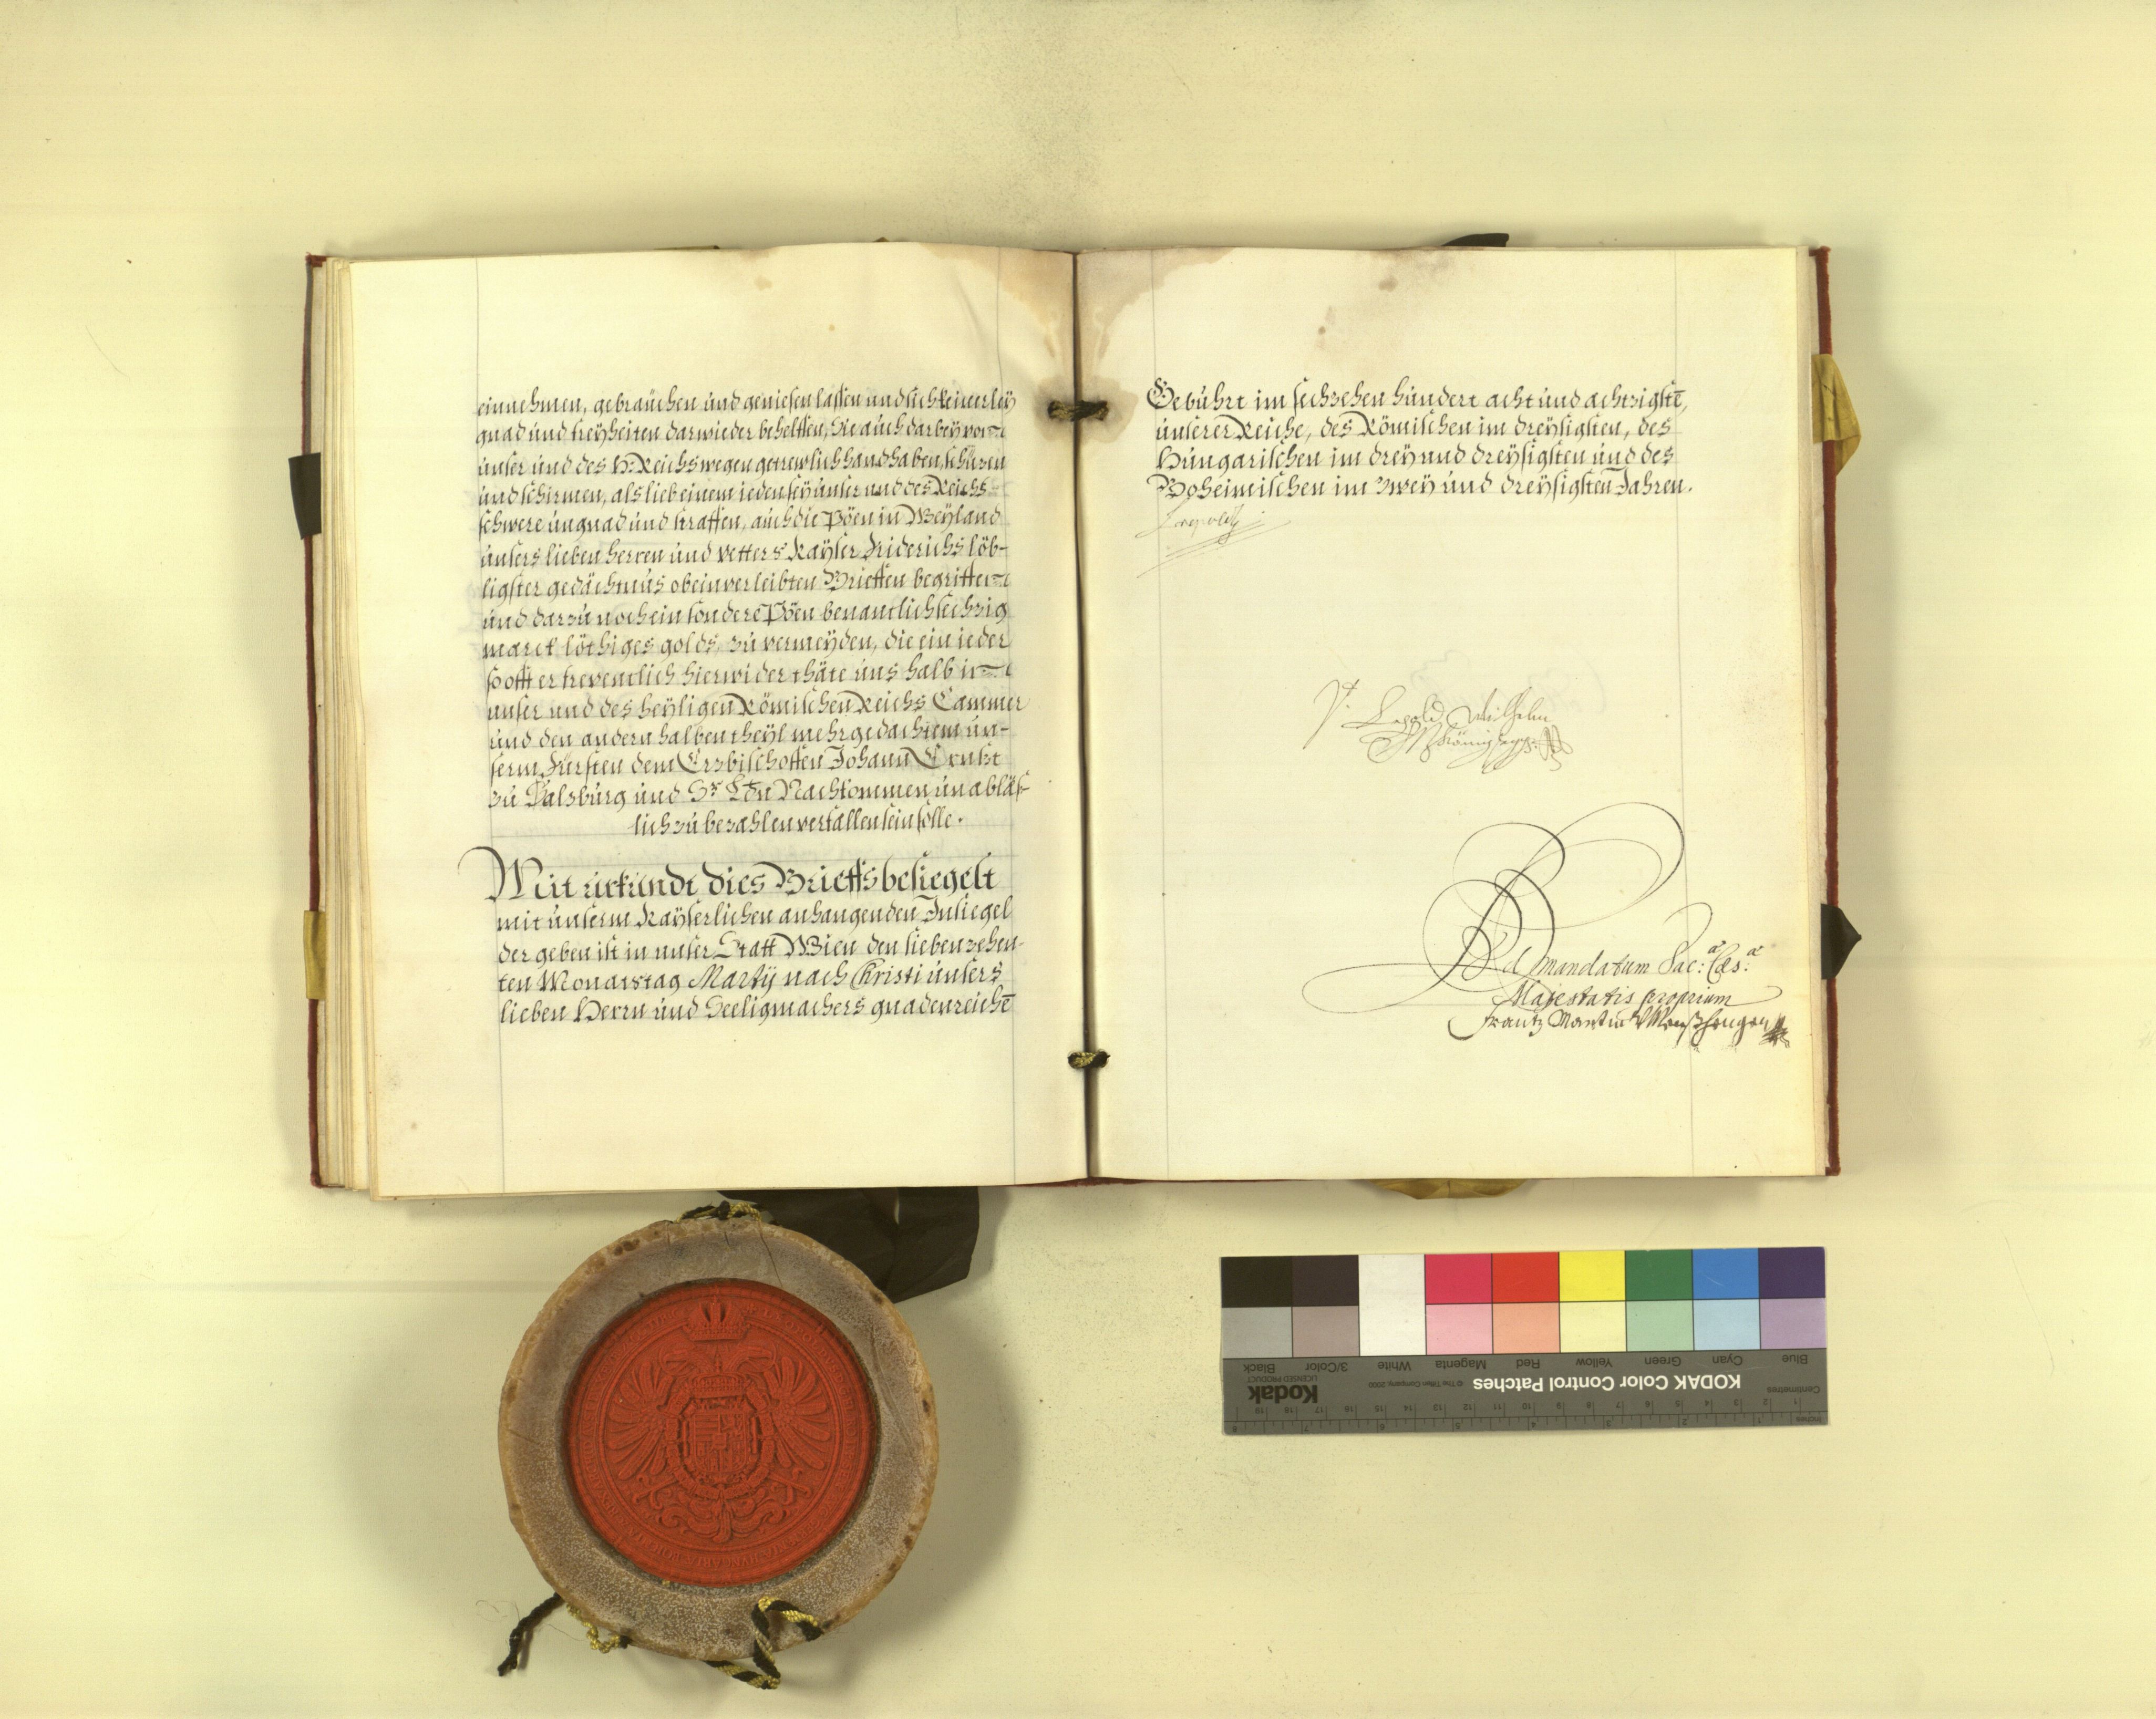 einnehmen, gebraüchen und geniesen lassen und sich keinerleÿ
gnad und freÿheiten darwieder behelffen, Sie aüch darbeÿ von
unser und des H: Reichs wegen getrewlich handhaben, schüzen
und schirmen, als lieb einem ieden seÿ unser und des Reichs
schwere ungnad und straffen, aüch die Pöen in Weÿland
unsers lieben herren und vetters Kaÿser Friderichs löb-
ligster gedächtnüs obeinverleibten Brieffen begriffen
und darzu noch ein sondere Pöen benantlich sechzig
marck löthiges golds, zu vermeÿden, die ein ieder
so offt er freventlich hierwider thäte uns halb in
unser und des heÿligen Römischen Reichs Cammer
und den andern halben theÿl mehrgedachtem un-
serm Fürsten dem Erzbischoffen Johann Ernst
zu Salzburg und Sr Ldn Nachkommen unabläs-
lich zu bezahlen verfallen sein solle.
Mit urkundt dies Brieffs besiegelt
mit unserm Kaÿserlichen anhangenden Insiegel
der geben ist in unser Statt Wien den siebenzehen-
ten Monatstag Martij nach Christi unsers
lieben Herrn und Seeligmachers gnadenreichē
Gebührt im sechzehen hundert acht und achtzigstē,
unserer Reiche, des Römischen im dreÿsigsten, des
Hungarischen im dreÿ und dreÿsigsten und des
Boheimischen im zweÿ und dreÿsigsten Jahren.
Leopoldt
Vt Leopold Wilhelm
Königsegg
Ad mandatum Sac: ae Caes: ae
Majestatis proprium
Frantz Martin Menßhengen
KODAK Color Control Patches
Kodak
LICENSED PRODUCT
© The Tiffen Company, 2000
Blue Cyan Green Yellow Red Magenta White 3/Color Black
Centimetres
Inches